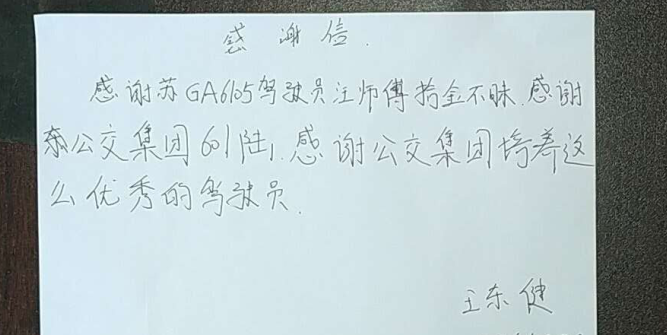 感谢信.
感谢苏GA6105驾驶员汪师傅拾金不昧.感谢
公交集团601陆,感谢公交集团培养这
么优秀的驾驶员.
王东健